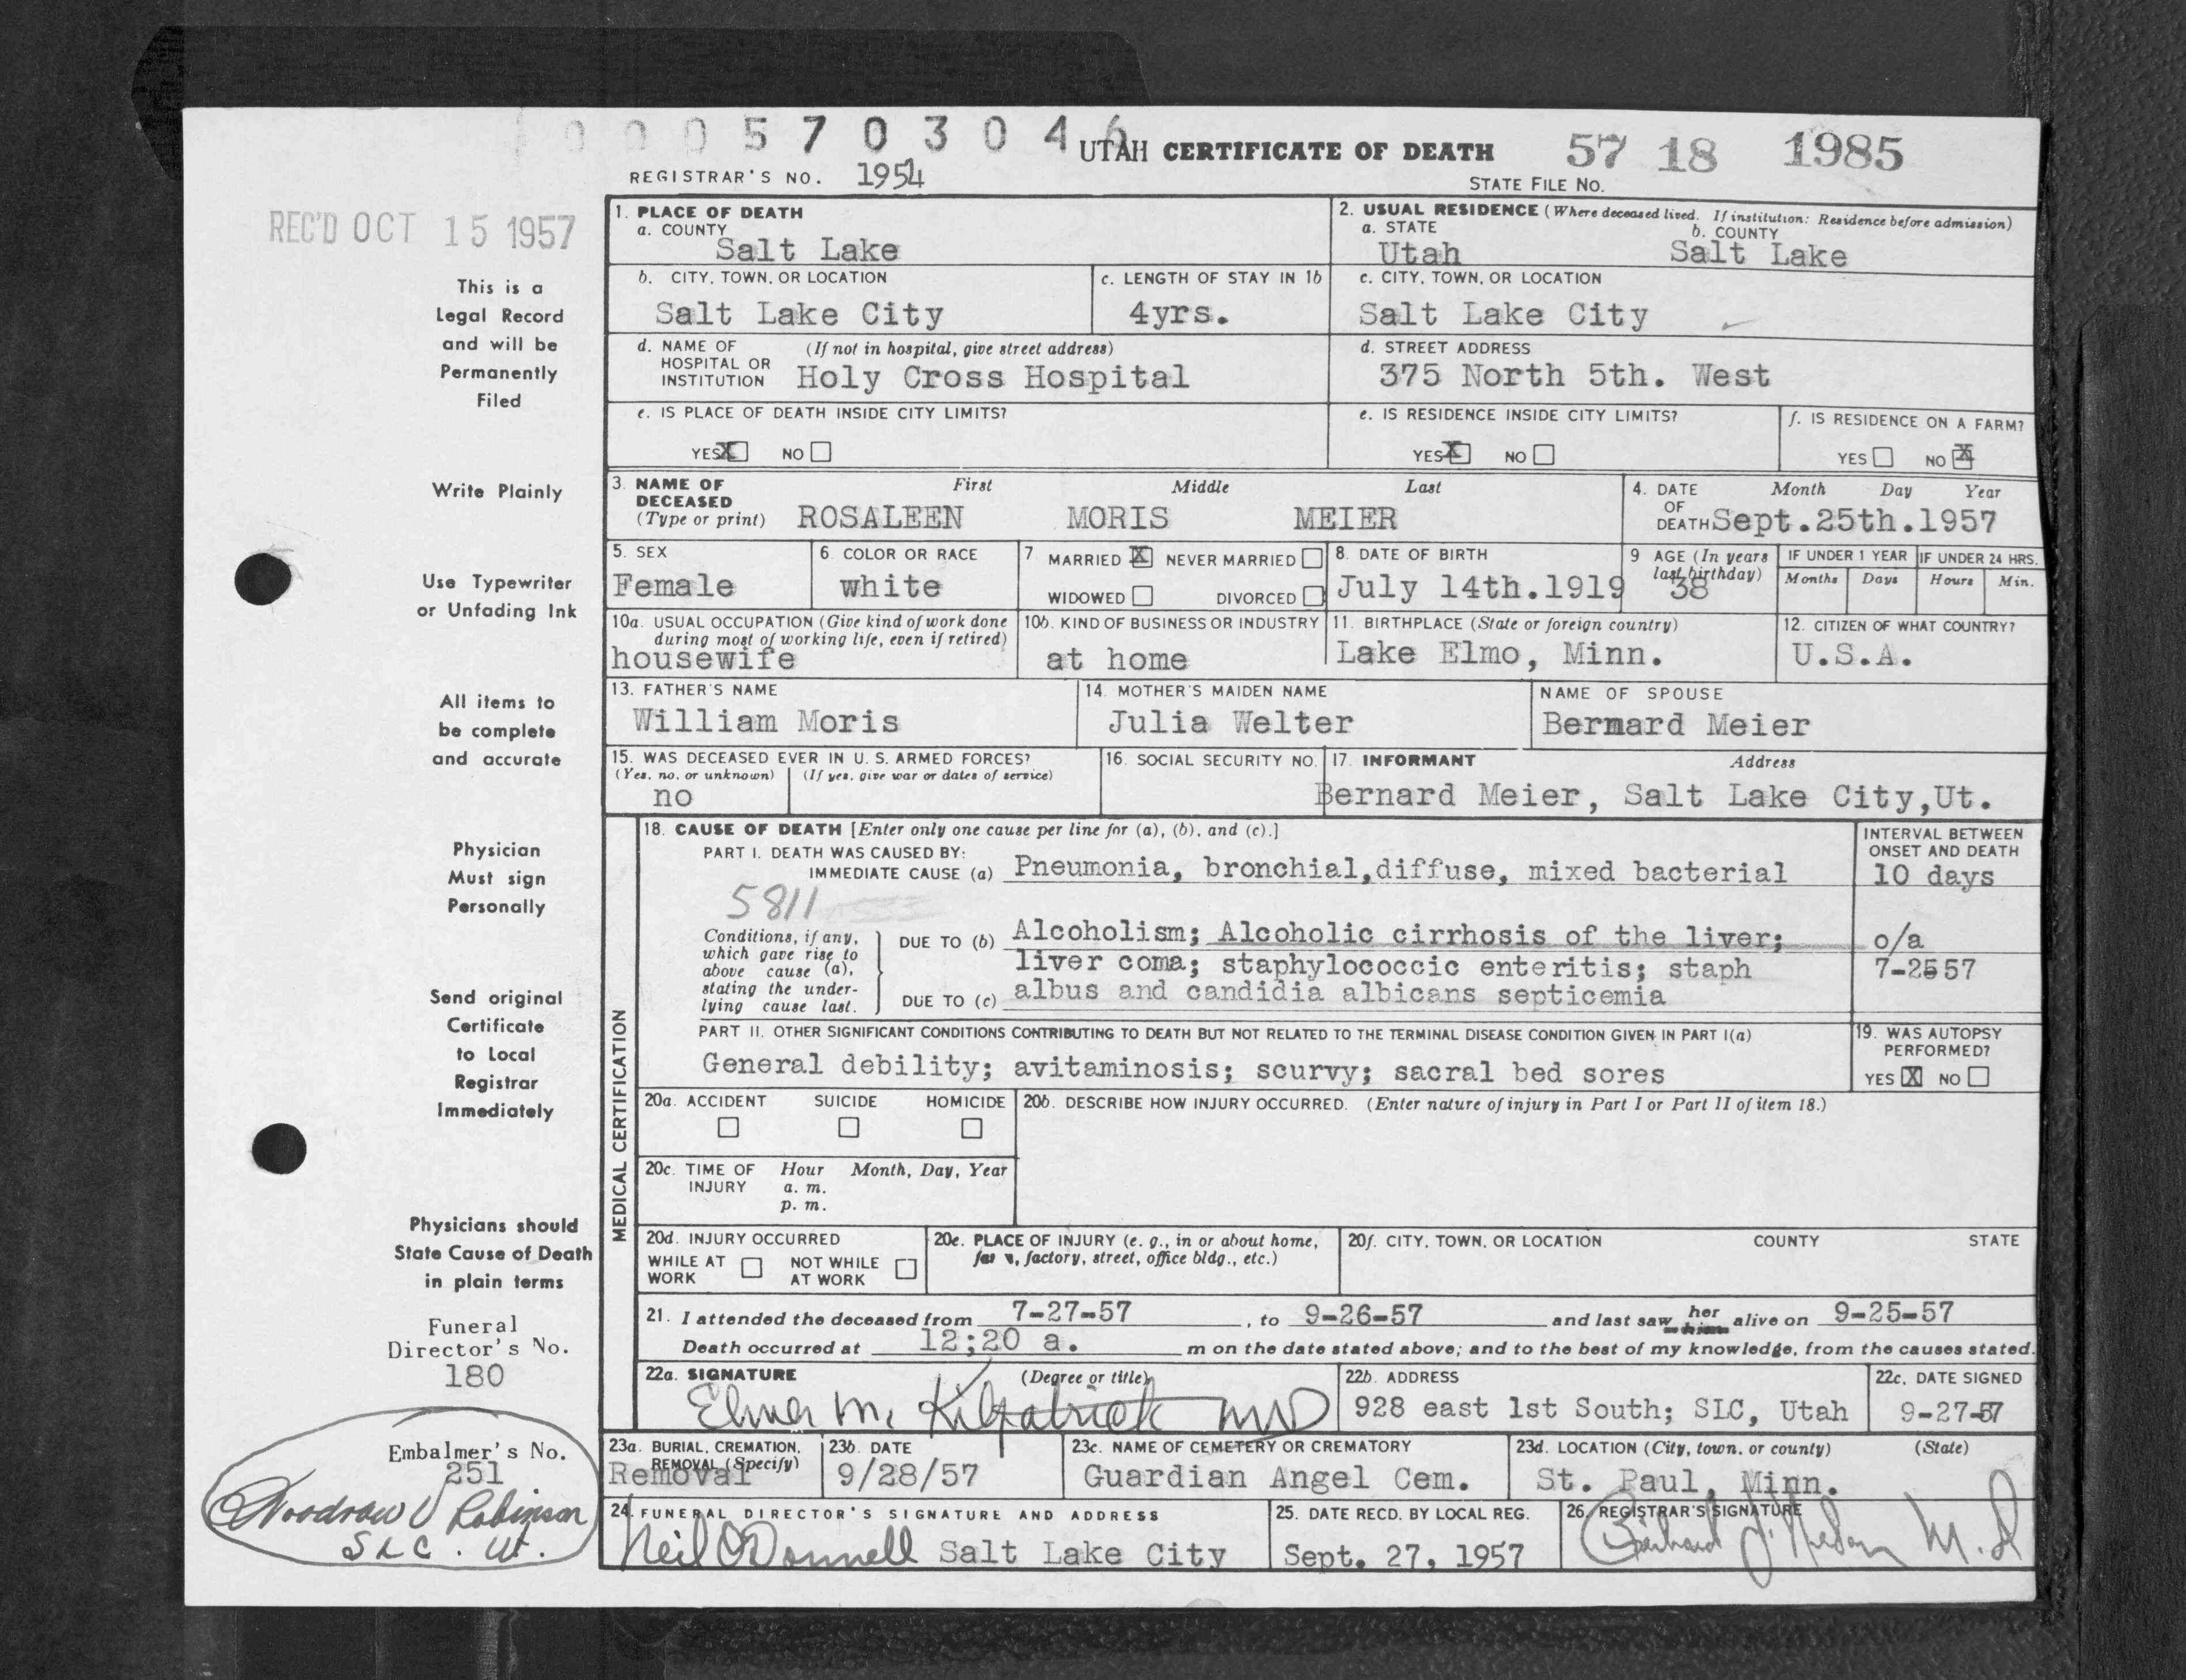 0 0 0 5 7 0 3 0 4 6
UTAH CERTIFICATE OF DEATH 57 18 1985
REGISTRAR'S NO. 1954 STATE FILE NO.
REC'D OCT 15 1957
This is a
Legal Record
and will be
Permanently
Filed
Write Plainly
Use Typewriter
or Unfading Ink
All items to
be complete
and accurate
Physician
Must sign
Personally
Send original
Certificate
to Local
Registrar
Immediately
Physicians should
State Cause of Death
in plain terms
Funeral
Director's No.
180
Embalmer's No.
251
Woodrow V Robinson
SLC. Ut.
1. PLACE OF DEATH
a. COUNTY
Salt Lake
2. USUAL RESIDENCE (Where deceased lived. If institution: Residence before admission)
a. STATE b. COUNTY
Utah Salt Lake
b. CITY, TOWN, OR LOCATION
Salt Lake City
c. LENGTH OF STAY IN 1b
4yrs.
c. CITY, TOWN, OR LOCATION
Salt Lake City
d. NAME OF (If not in hospital, give street address)
HOSPITAL OR
INSTITUTION Holy Cross Hospital
d. STREET ADDRESS
375 North 5th. West
e. IS PLACE OF DEATH INSIDE CITY LIMITS?
YES X NO
e. IS RESIDENCE INSIDE CITY LIMITS?
YES X NO
f. IS RESIDENCE ON A FARM?
YES NO X
3. NAME OF First Middle Last
DECEASED
(Type or print) ROSALEEN MORIS MEIER
4. DATE Month Day Year
OF
DEATH Sept.25th.1957
5. SEX
Female
6. COLOR OR RACE
white
7 MARRIED X NEVER MARRIED
WIDOWED DIVORCED
8. DATE OF BIRTH
July 14th.1919
9 AGE (In years
last birthday)
38
IF UNDER 1 YEAR IF UNDER 24 HRS.
Months Days Hours Min.
10a. USUAL OCCUPATION (Give kind of work done
during most of working life, even if retired)
housewife
10b. KIND OF BUSINESS OR INDUSTRY
at home
11. BIRTHPLACE (State or foreign country)
Lake Elmo, Minn.
12. CITIZEN OF WHAT COUNTRY?
U.S.A.
13. FATHER'S NAME
William Moris
14. MOTHER'S MAIDEN NAME
Julia Welter
NAME OF SPOUSE
Bernard Meier
15. WAS DECEASED EVER IN U. S. ARMED FORCES?
(Yes, no, or unknown) (If yes, give war or dates of service)
no
16. SOCIAL SECURITY NO.
17. INFORMANT Address
Bernard Meier, Salt Lake City,Ut.
MEDICAL CERTIFICATION
18. CAUSE OF DEATH [Enter only one cause per line for (a), (b), and (c).]
PART I. DEATH WAS CAUSED BY:
IMMEDIATE CAUSE (a) Pneumonia, bronchial,diffuse, mixed bacterial
INTERVAL BETWEEN
ONSET AND DEATH
10 days
5811
Conditions, if any,
which gave rise to
above cause (a),
stating the under-
lying cause last.
DUE TO (b) Alcoholism; Alcoholic cirrhosis of the liver; o/a
liver coma; staphylococcic enteritis; staph 7-2557
DUE TO (c) albus and candidia albicans septicemia
PART II. OTHER SIGNIFICANT CONDITIONS CONTRIBUTING TO DEATH BUT NOT RELATED TO THE TERMINAL DISEASE CONDITION GIVEN IN PART I(a)
General debility; avitaminosis; scurvy; sacral bed sores
19. WAS AUTOPSY
PERFORMED?
YES X NO
20a. ACCIDENT SUICIDE HOMICIDE
20b. DESCRIBE HOW INJURY OCCURRED. (Enter nature of injury in Part I or Part II of item 18.)
20c. TIME OF Hour Month, Day, Year
INJURY a. m.
p. m.
20d. INJURY OCCURRED
WHILE AT NOT WHILE
WORK AT WORK
20e. PLACE OF INJURY (e. g., in or about home,
factory, street, office bldg., etc.)
20f. CITY, TOWN, OR LOCATION COUNTY STATE
21. I attended the deceased from 7-27-57, to 9-26-57 and last saw her him alive on 9-25-57
Death occurred at 12;20 a. m on the date stated above; and to the best of my knowledge, from the causes stated.
22a. SIGNATURE (Degree or title)
Elmer M. Kilpatrick MD
22b. ADDRESS
928 east 1st South; SLC, Utah
22c. DATE SIGNED
9-27-57
23a. BURIAL, CREMATION,
REMOVAL (Specify)
Removal
23b. DATE
9/28/57
23c. NAME OF CEMETERY OR CREMATORY
Guardian Angel Cem.
23d. LOCATION (City, town, or county) (State)
St. Paul, Minn.
24. FUNERAL DIRECTOR'S SIGNATURE AND ADDRESS
Neil O'Donnell Salt Lake City
25. DATE RECD. BY LOCAL REG.
Sept. 27, 1957
26. REGISTRAR'S SIGNATURE
M.D